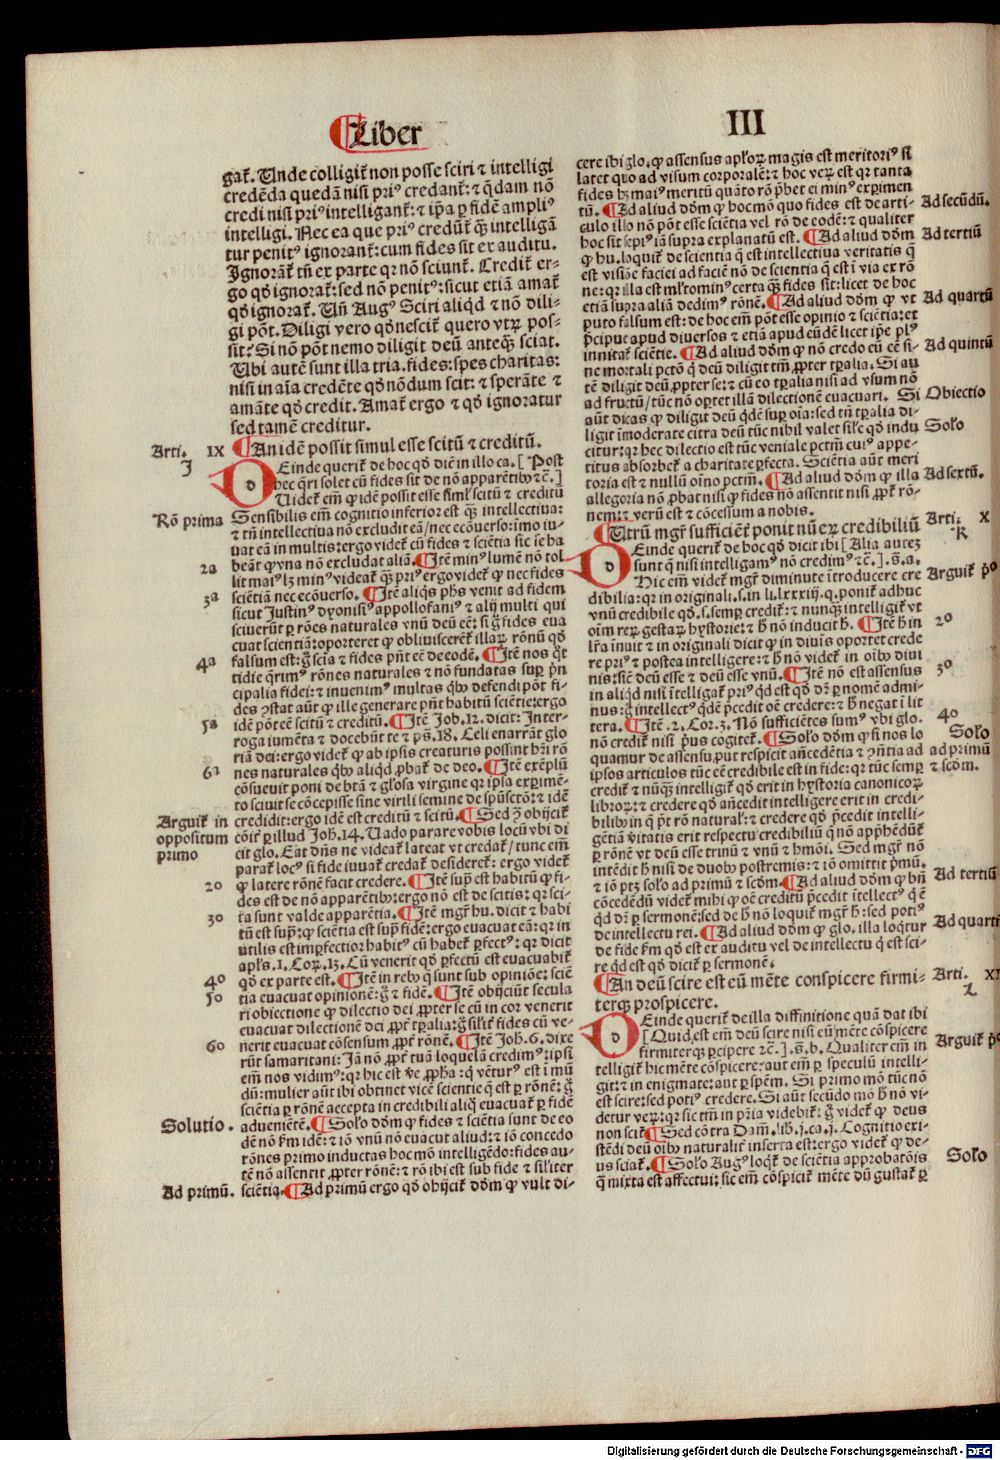 Liber
III
gat᷑. Unde colligit᷑ non posse sciri ⁊ intelligi
credēda quedā nisi priꝰ credant᷑: ⁊ q̄dam nō
credi nisi priꝰ intelligant᷑: ⁊ ip̄a ꝑ fidē ampliꝰ
intelligi. Nec ea que priꝰ credūt᷑ qꝫ intelligā
tur penitꝰ ignorant᷑: cum fides sit ex auditu.
Ignorāt᷑ tn̄ ex parte qr nō sciunt᷑. Credit᷑ er-
go qđ ignorat᷑: sed non penitꝰ: sicut etiā amat᷑
qđ ignorat᷑. Un̄ Augꝰ Sciri aliqd ⁊ nō dili-
gi pōt. Diligi vero qđ nescit᷑ quero vtꝝ pos-
sit? Si nō pōt nemo diligit deū anteqꝫ sciat.
Ubi autē sunt illa tria. fides: spes charitas:
nisi in aīa credēte qđ nōdum scit: ⁊ sperāte ⁊
amāte qđ credit. Amat᷑ ergo ⁊ qđ ignoratur
sed tamē creditur.
Arti. IX
J
An idē possit simul esse scitū ⁊ creditū.
Deinde querit᷑ de hoc qđ diē in illo ca. [Post
hec q̄ri solet cū fides sit de nō apparētibꝫ ⁊č.]
Uidet᷑ em̄ ꝙ idē possit esse siml̓ scitū ⁊ creditū
Rō prima
Sensibilis em̄ cognitio inferior est qꝫ intellectiua:
⁊ tn̄ intellectiua nō excludit eā/nec ecōuerso: imo iu-
uat eā in multis: ergo videt᷑ cū fides ⁊ sciētia sic se ha
beāt ꝙ vna nō excludat aliā. Itē minꝰ lumē nō tol
2a
lit maiꝰ lꝫ minꝰ videat᷑ qꝫ priꝰ ergo videt᷑ ꝙ nec fides
3a
sciētiā nec ecōuerso. Itē aliqs ph̄s venit ad fidem
sicut Justinꝰ dyonisiꝰ appollofaniꝰ ⁊ alij multi qui
sciuerūt ꝑ rōes naturales vnū deū eē: si ḡ fides eua
cuat scientiā: oporteret ꝙ obliuiscerēt᷑ illaꝝ rōnū qđ
4a
falsum est: ḡ scīa ⁊ fides pn̄t eē de eodē. Itē nos q̄t
tidie q̄rimꝰ rōnes naturales ⁊ nō fundatas suꝑ p̄n
cipalia fidei: ⁊ inuenimꝰ multas qbꝫ defendi pōt fi-
des ꝯstat aūt ꝙ ille generare pn̄t habitū sciētie: ergo
5a
idē pōt eē scitū ⁊ creditū. Itē Job. 12. dicit: Inter-
roga iumēta ⁊ docebūt te ⁊ pš. 18. Celi enarrāt glo
riā dei: ergo videt᷑ ꝙ ab ipsis creaturis possint hr̄i rō
6a
nes naturales qbꝫ aliqd ꝓbat᷑ de deo. Itē exēplū
cōsueuit poni de btā ⁊ gl̓osa virgine qr ipsa experimē-
to sciuit se cōcepisse sine virili semine de spūsctō: ⁊ idē
Arguit᷑ in
oppositum
primo
credidit: ergo idē est creditū ⁊ scitū. Sed ꝯ̄ obijcit᷑
cōit᷑ ꝑ illud Joh̄. 14. Uado parare vobis locū vbi di
cit glo. Eat dn̄s ne videat᷑ lateat vt credat᷑/tunc em̄
parat᷑ locꝰ si fide iuuat᷑ credat᷑ desideret᷑: ergo videt᷑
2o
ꝙ latere rōnē facit credere. Itē supͣ est habitū ꝙ fi-
des est de nō apparētibꝫ: ergo nō est de scitis: qr sci-
3o
ta sunt valde apparētia. Itē mgr̄ hu. dicit ⁊ habi
tū est supͣ: ꝙ sciētia est supͣ fidē: ergo euacuat eā: qr in
utilis est imperfectior habitꝰ cū habet᷑ ꝑfectꝰ: qr dicit
apl̓s. 1. Coꝝ. 13. Cū venerit qđ ꝑfectū est euacuabit᷑
4o
qđ ex parte est. Itē in rebꝫ q̄ sunt sub opiniōe: sciē
5o
tia euacuat opinionē: ḡ ⁊ fidē. Itē obijciūt secula
ri obiectione ꝙ dilectio dei ꝓpter se cū in cor venerit
euacuat dilectionē dei ꝓpt᷑ tꝑalia: ḡ sil̓it᷑ fides cū ve-
6o
nerit euacuat cōsensum ꝓpt᷑ rōnē. Itē Joh̄. 6. dixe
rūt samaritani: Jā nō ꝓpt᷑ tuā loquelā credimꝰ: ipsi
em̄ nos vidimꝰ: qr hic est ve ꝓpha: q̄ vēturꝰ est ī mū
dū: mulier aūt ibi obtinet vicē scientie q̄ est ꝑ rōnē: ḡ
sciētia ꝑ rōnē accepta in credibili aliq̄ euacuat᷑ ꝑ fidē
Solutio.
aduenietē. Sol̓o dōm ꝙ fides ⁊ sciētia sunt de eo
dē nō ẜm idē: ⁊ iō vnū nō euacūt aliud: ⁊ iō concedo
rōnes primo inductas hoc mō intelligēdo: fides au-
tē nō assentit ꝓpter rōnē: ⁊ rō ibi est sub fide ⁊ sil̓iter
Ad primū.
sciētia. Ad primū ergo qđ obijcit᷑ dōm ꝙ vult di-
cere ibi glo. ꝙ assensus apl̓oꝝ magis est meritoriꝰ si
latet quo ad visum corporalē: ⁊ hoc veꝝ est qr tanta
fides hꝫ maiꝰ meritū quāto rō p̄bet ei minꝰ experimen
Ad secūdū.
tū. Ad aliud dōm ꝙ hoc mō quo fides est de arti-
culo illo nō pōt esse sciētia vel rō de eodē: ⁊ qualiter
Ad tertiū
hoc sit sepiꝰ iā supra explanatū est. Ad aliud dōm
ꝙ hu. loquit᷑ de scientia q̄ est intellectiua veritatis q̄
est visiōe faciei ad faciē nō de scientia q̄ est ī via ex rō
ne: qr illa est ml̓tominꝰ certa qꝫ fides sit: licet de hoc
Ad quartū
etiā supra aliā dedimꝰ rōnē. Ad aliud dōm ꝙ vt
puto falsum est: de hoc em̄ pōt esse opinio ⁊ sciētia: et
p̄cipue apud diuersos ⁊ etiā apud eūdē licet ip̄e plꝰ
Ad quintū
innitat᷑ sciētie. Ad aliud dōm ꝙ nō credo cū eē si-
ne mortali pctō q̄ deū diligit tm̄ ꝓpter tꝑalia. Si au
tē diligit deū ꝓpter se: ⁊ cū eo tꝑalia nisi ad vsum nō
Obiectio
ad fructū/tūc nō oꝑtet illā dilectionē euacuari. Si
aūt dicas ꝙ diligit deū q̄dē suꝑ oīa: sed tn̄ tꝑalia di-
Sol̓o
ligit īmoderate citra deū tūc nihil valet sil̓e qđ indu
citur: qr hec dilectio est tūc veniale pctm̄ cuiꝰ appe-
titus absorbet᷑ a charitate ꝑfecta. Sciētia aūt meri
Ad sextū.
toria est ⁊ nullū oīno pctm̄. Ad aliud dōm ꝙ illa
allegoria nō ꝓbat nisi ꝙ fides nō assentit nisi ꝓpt᷑ rō-
nem: ⁊ verū est ⁊ cōcessum a nobis.
Arti. X
K
Utrū mgr̄ sufficiēt᷑ ponit nūeꝝ credibiliū
Deinde querit᷑ de hoc qđ dicit ibi [Alia autez
sunt q̄ nisi intelligamꝰ nō credimꝰ ⁊č.]. š. a.
Arguit᷑ p̄o
Hic em̄ videt᷑ mgr̄ diminute ītroducere cre
dibilia: qr in originali. s. in li. lxxxiij. q. ponit᷑ adhuc
vnū credibile qđ. s. semꝑ credit᷑: ⁊ nunqꝫ intelligit᷑ vt
2o
oīm reꝝ gestaꝝ hystorie: ⁊ h̄ nō inducit h̄. Itē h̄ in
lr̄a īnuit ⁊ in originali dicit ꝙ in diuīs oportet crede
re priꝰ ⁊ postea intelligere: ⁊ h̄ nō videt᷑ in oībꝫ diui
3o
nis: sic̄ deū esse ⁊ deū esse vnū. Itē nō est assensus
in aliqd nisi ītelligat᷑ priꝰ qd est qđ dr̄ ꝑ nomē admi-
nus: ḡ intellectꝰ q̄dē p̄cedit oē credere: ⁊ h̄ negat ī lit
4o
tera. Itē. 2. Cor. 3. Nō sufficiētes sumꝰ vbi glo.
Sol̓o
nō credit᷑ nisi p̄us cogitet᷑. Sol̓o dōm ꝙ si nos lo
ad primū
⁊ scōm.
quamur de assensu ꝓut respicit an̄cedētia ⁊ ꝯn̄tia ad
ipsos articulos tūc eē credibile est in fide: qr tūc semꝑ
credit᷑ ⁊ nūqꝫ intelligit᷑ qđ erit in hystoria canonicoꝝ
libroꝝ: ⁊ credere qđ an̄cedit intelligere erit in credi-
bilibꝫ in q̄ p̄t rō natural᷑: ⁊ credere qđ p̄cedit intelli-
gētiā vitatis erit respectu credibiliū q̄ nō app̄hēdūt᷑
ꝑ rōnē vt deū esse trinū ⁊ vnū ⁊ hmōi. Sed mgr̄ nō
intēdit h̄ nisi de duobꝫ postremis: ⁊ iō omittit p̄mū.
Ad tertiū
⁊ iō ptꝫ sol̓o ad primū ⁊ scōm. Ad aliud dōm ꝙ bn̄
cōcedēdū videt᷑ mihi ꝙ oē creditū p̄cedit ītellectꝰ q̄ ē
qd dr̄ ꝑ sermonē: sed de h̄ nō loquit᷑ mgr̄ h̄: sed potiꝰ
Ad quartū
de intellectu rei. Ad aliud dōm ꝙ glo. illa loqtur
de fide ẜm qđ est ex auditu vel de intellectu q̄ est sci-
re qd est qđ dicit᷑ ꝑ sermonē.
Arti. XI
L
An deū scire est eū mēte conspicere firmi-
terqꝫ prospicere.
Deinde querit᷑ de illa diffinitione quā dat ibi
[Quid est em̄ deū scire nisi eū mēte cōspicere
Arguit᷑ p̄o
firmiterqꝫ ꝑcipere ⁊č.]. š. b. Qualiter em̄ in
telligit᷑ hic mēte cōspicere: aut em̄ ꝑ speculū intelli-
git: ⁊ in enigmate: aut ꝑ spēm. Si primo mō tūc nō
est scire: sed potiꝰ credere. Si aūt secūdo mō h̄ nō vi-
detur veꝝ: qr sic tm̄ in pr̄ia videbit᷑: ḡ videt᷑ ꝙ deus
non scit᷑. Sed cōtra Dam̄. lib. j. ca. j. Cognitio exi-
stēdi deū oībꝫ naturalit᷑ inserta est: ergo videt᷑ ꝙ de-
Sol̓o
us sciat᷑. Sol̓o Augꝰ loqt᷑ de sciētia approbatōis
q̄ mixta est affectui: sic em̄ cōspicit᷑ mēte dū gustat᷑ ꝑ
Digitalisierung gefördert durch die Deutsche Forschungsgemeinschaft - DFG